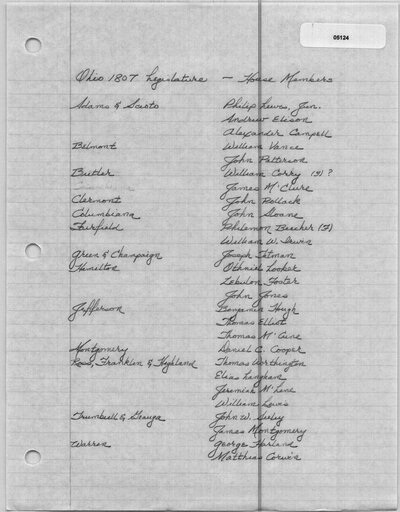 05124
Ohio 1807 Legislature — House Members
Adams & Scioto Philip Lewis, Jun.
Andrew Elison
Alexander Campell
Belmont William Vance
John Patterson
Butler William Corry (s) ?
James M'Clure
Clermont John Pollack
Columbiana John Sloane
Fairfield Philemon Beecher (F)
William W. Irwin
Green & Champaign Joseph Tatman
Hamilton Othniel Looker
Zebulon Foster
John Jones
Jefferson Benjamin Hough
Thomas Elliot
Thomas M'Cune
Montgomery Daniel C. Cooper
Ross, Franklin & Highland Thomas Worthington
Elias Langham
Jeremiah M'Lene
William Lewis
Trumbull & Geauga John W. Seeley
James Montgomery
Warren George Harland
Matthias Corwin